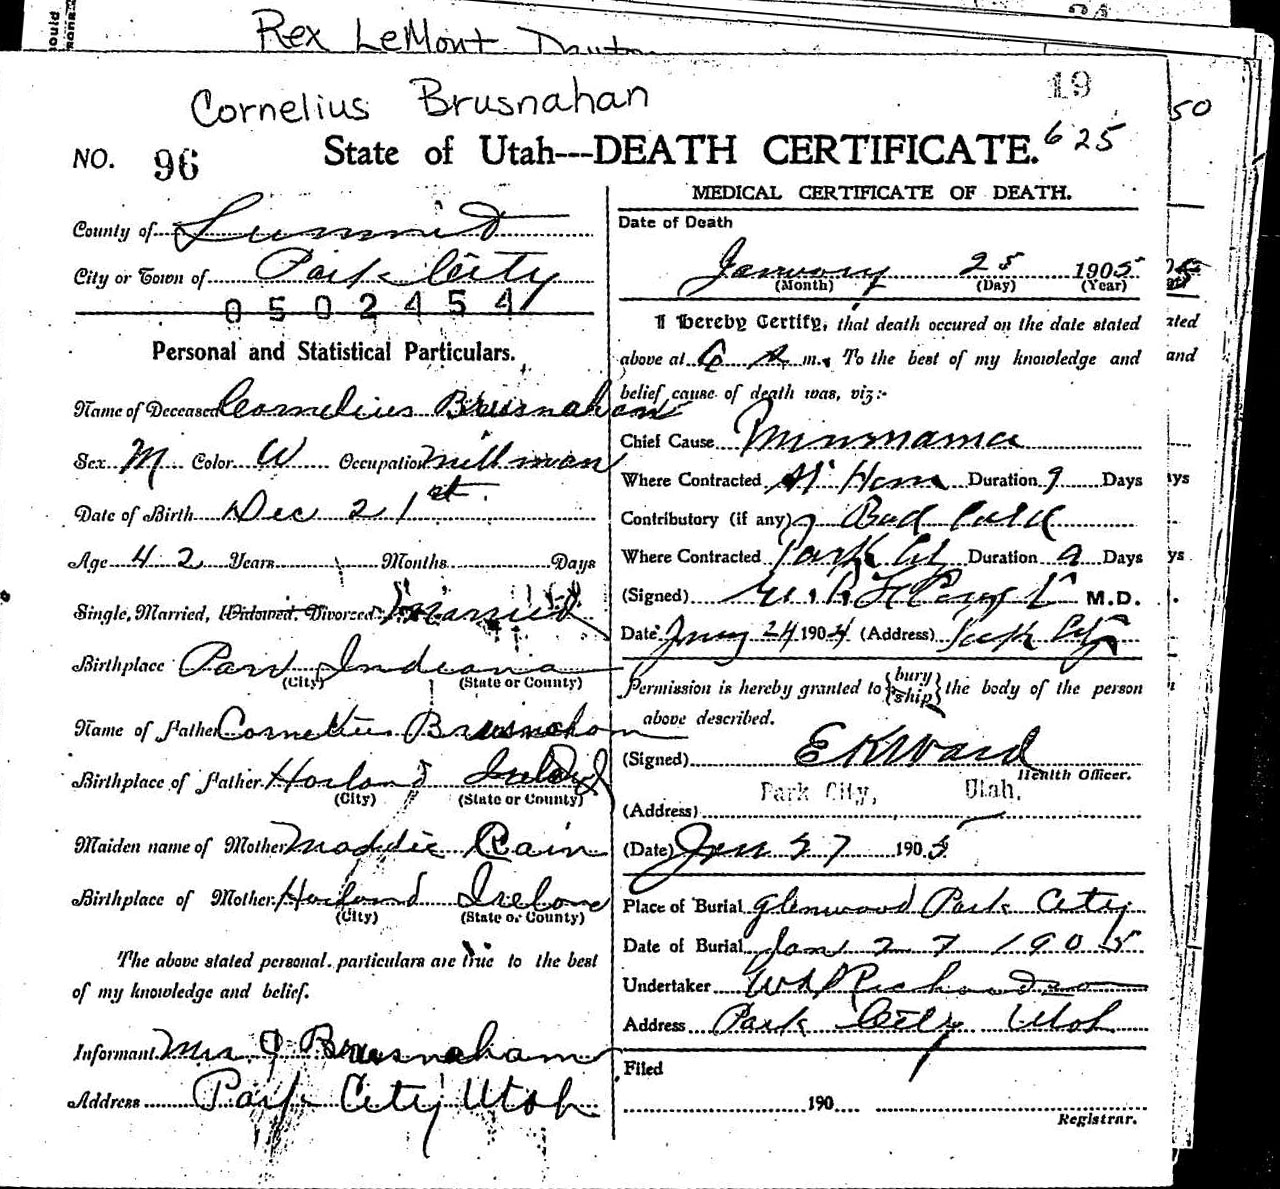 Rex LeMont
Cornelius Brusnahan
19
50
625
NO. 96
State of Utah---DEATH CERTIFICATE.
County of Summit
City or Town of Park City
0502454
Personal and Statistical Particulars.
Name of Deceased Cornelius Brusnahan
Sex M Color W Occupation millman
Date of Birth Dec 21st
Age 42 Years Months Days
Single, Married, Widowed. Divorced Married
Birthplace Indiana
(City) (State or County)
Name of Father Cornelius Brusnahan
Birthplace of Father
(City) (State or County)
Maiden name of Mother Cain
Birthplace of Mother Ireland
(City) (State or County)
The above stated personal particulars are true to the best
of my knowledge and belief.
Informant Mrs Brusnahan
Address Park City Utah
MEDICAL CERTIFICATE OF DEATH.
Date of Death
January 25 1905
(Month) (Day) (Year)
I Hereby Certify, that death occured on the date stated
above at 6 A m. To the best of my knowledge and
belief cause of death was, viz:-
Chief Cause
Where Contracted At Home Duration 9 Days
Contributory (if any) Bad Cold
Where Contracted Park City Duration 9 Days
(Signed) M.D.
Date 24 1904 (Address) Park City
Permission is hereby granted to {bury ship} the body of the person
above described.
(Signed) E K Ward
Health Officer.
Park City, Utah.
(Address)
(Date) Jan 27 1905
Place of Burial Glenwood Park City
Date of Burial Jan 27 1905
Undertaker Richardson
Address Park City Utah
Filed
190
Registrar.